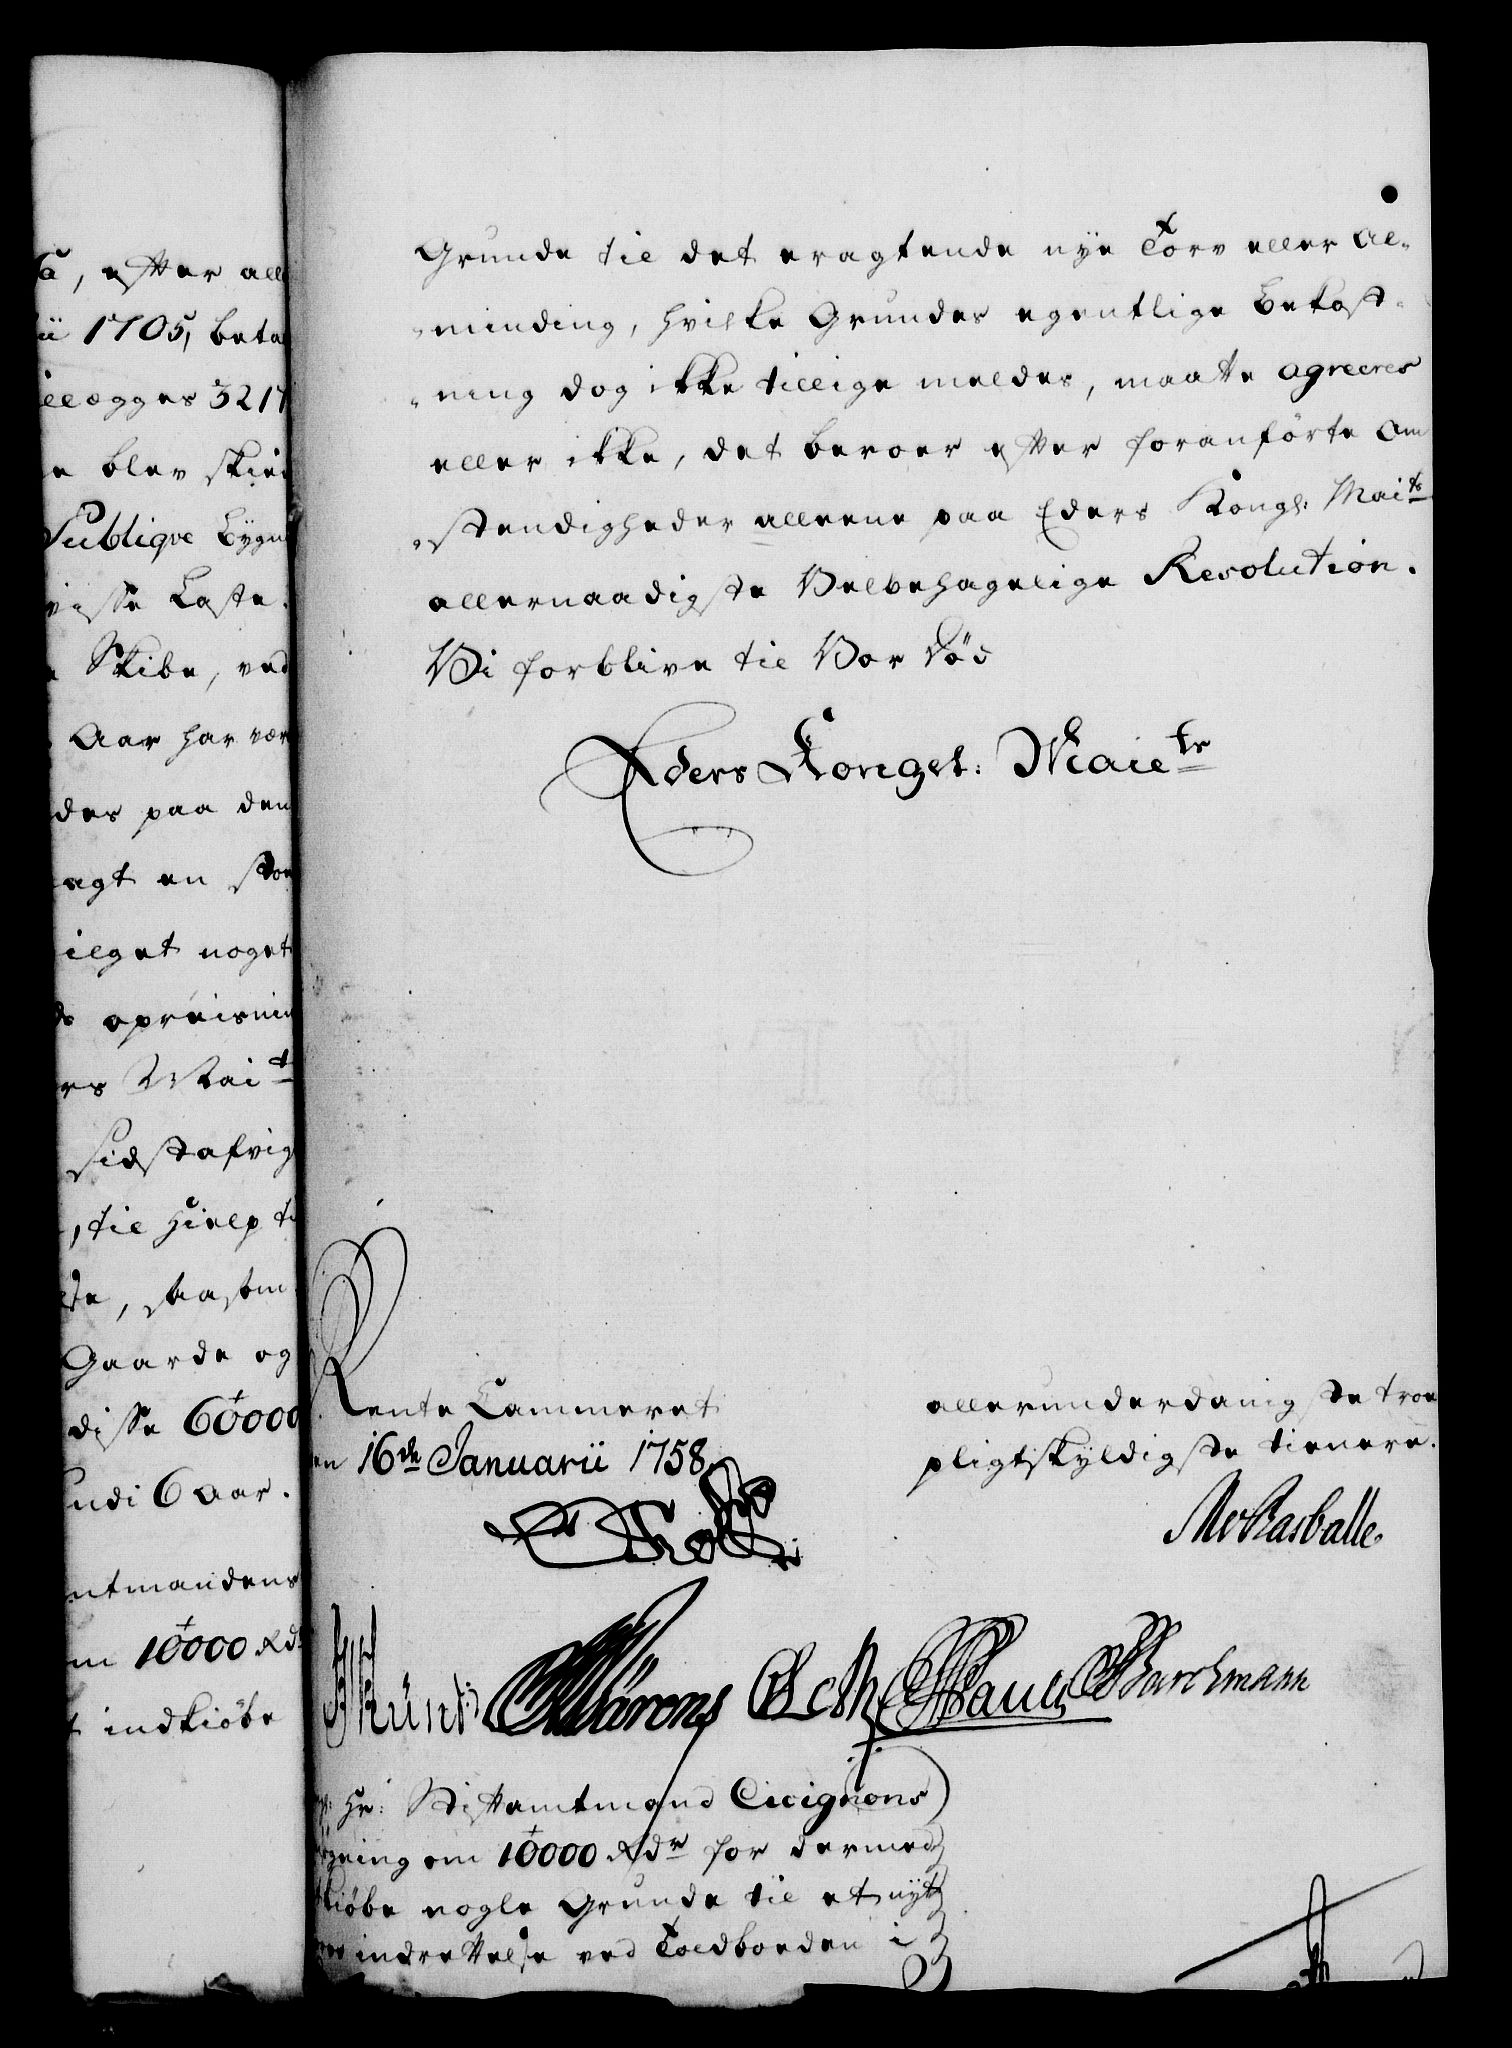 Ta, efter all
ii 1705, beta
illægges 3217
e blev skied
Publiqve Bygn
visse Laste.
e Skibe, ved
Aar har vær
des paa den
agt en stor
ilget noget
ds opreisnin
rs Mait
sidst afvig
, til Hielp ti
Gaarde og
disse 60000
undi 6 Aar.
ntmandens
m 10000 Rdr
t indkiøbe
Grunde til det eragtende nye Torv eller Al-
-minding, hvilke Grundes egentlige Bekost-
-ning dog ikke tillige meldes, maatte agreeres
eller ikke, det beroer efter foranførte Om
-stendigheder alleene paa Eders Kongl: Maits
allernaadigste Velbehagelige Resolution.
Vi forblive til Vor Død
Eders Kongel: Maiets
Rente Cammeret
en 16de Januarii 1758.
allerunderdanigste troe
pligtskyldigste tienere.
Holst
Rasballe
Künd Wärens Barchmann
Hr: Stiftamtmand Cicignons
øgning om 10000 Rdr for dermed
kiøbe nogle Grunde til et nyt
indrettelse ved Toldboeden i